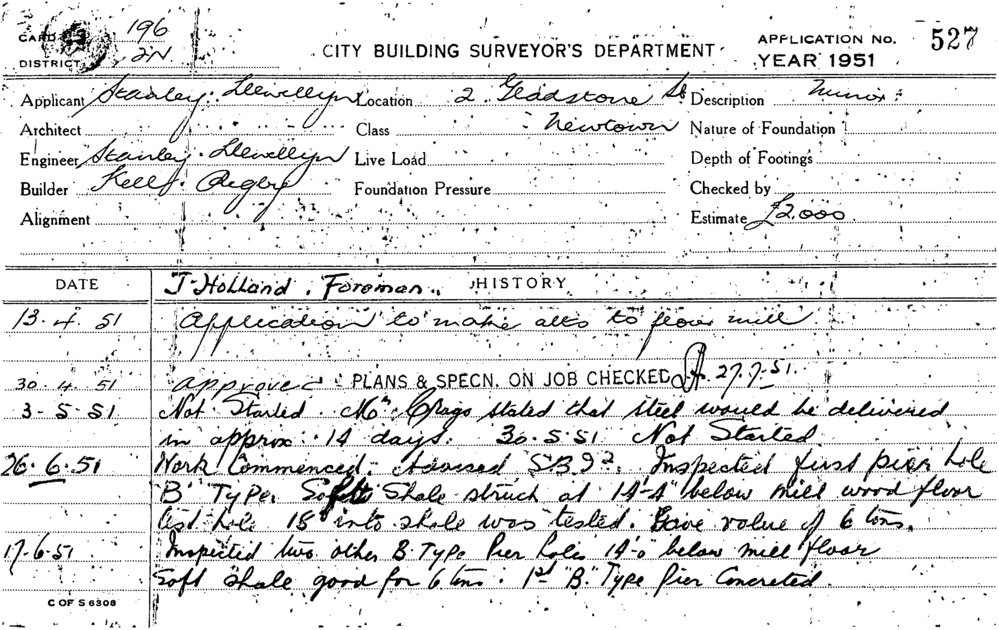 CARD 196
DISTRICT 2N
CITY BUILDING SURVEYOR'S DEPARTMENT
APPLICATION No. 527
YEAR 1951
Applicant Stanley Llewellyn Location 2 Gladstone St Description Minor
Architect Class Newtown Nature of Foundation
Engineer Stanley Llewellyn Live Load Depth of Footings
Builder Kell & Rigby Foundation Pressure Checked by
Alignment Estimate £2,000
DATE J. Holland. Foreman. HISTORY
13.4.51 Application to make alts to flour mill
30.4.51 Approved PLANS & SPECN. ON JOB CHECKED 27.7.51
3-5-51 Not Started. Mr Crago stated that steel would be delivered
in approx 14 days. 30.5.51 Not Started
26.6.51 Work Commenced. Advised S.B.I. Inspected first pier hole
"B" Type. Soft Shale struck at 14'-4" below mill wood floor
test hole 15" into shale was tested. Gave value of 6 tons.
17.6.51 Inspected two other B. Type Pier holes 14'-0" below mill floor
Soft shale good for 6 tons. 1st "B" Type Pier Concreted.
C OF S 6308